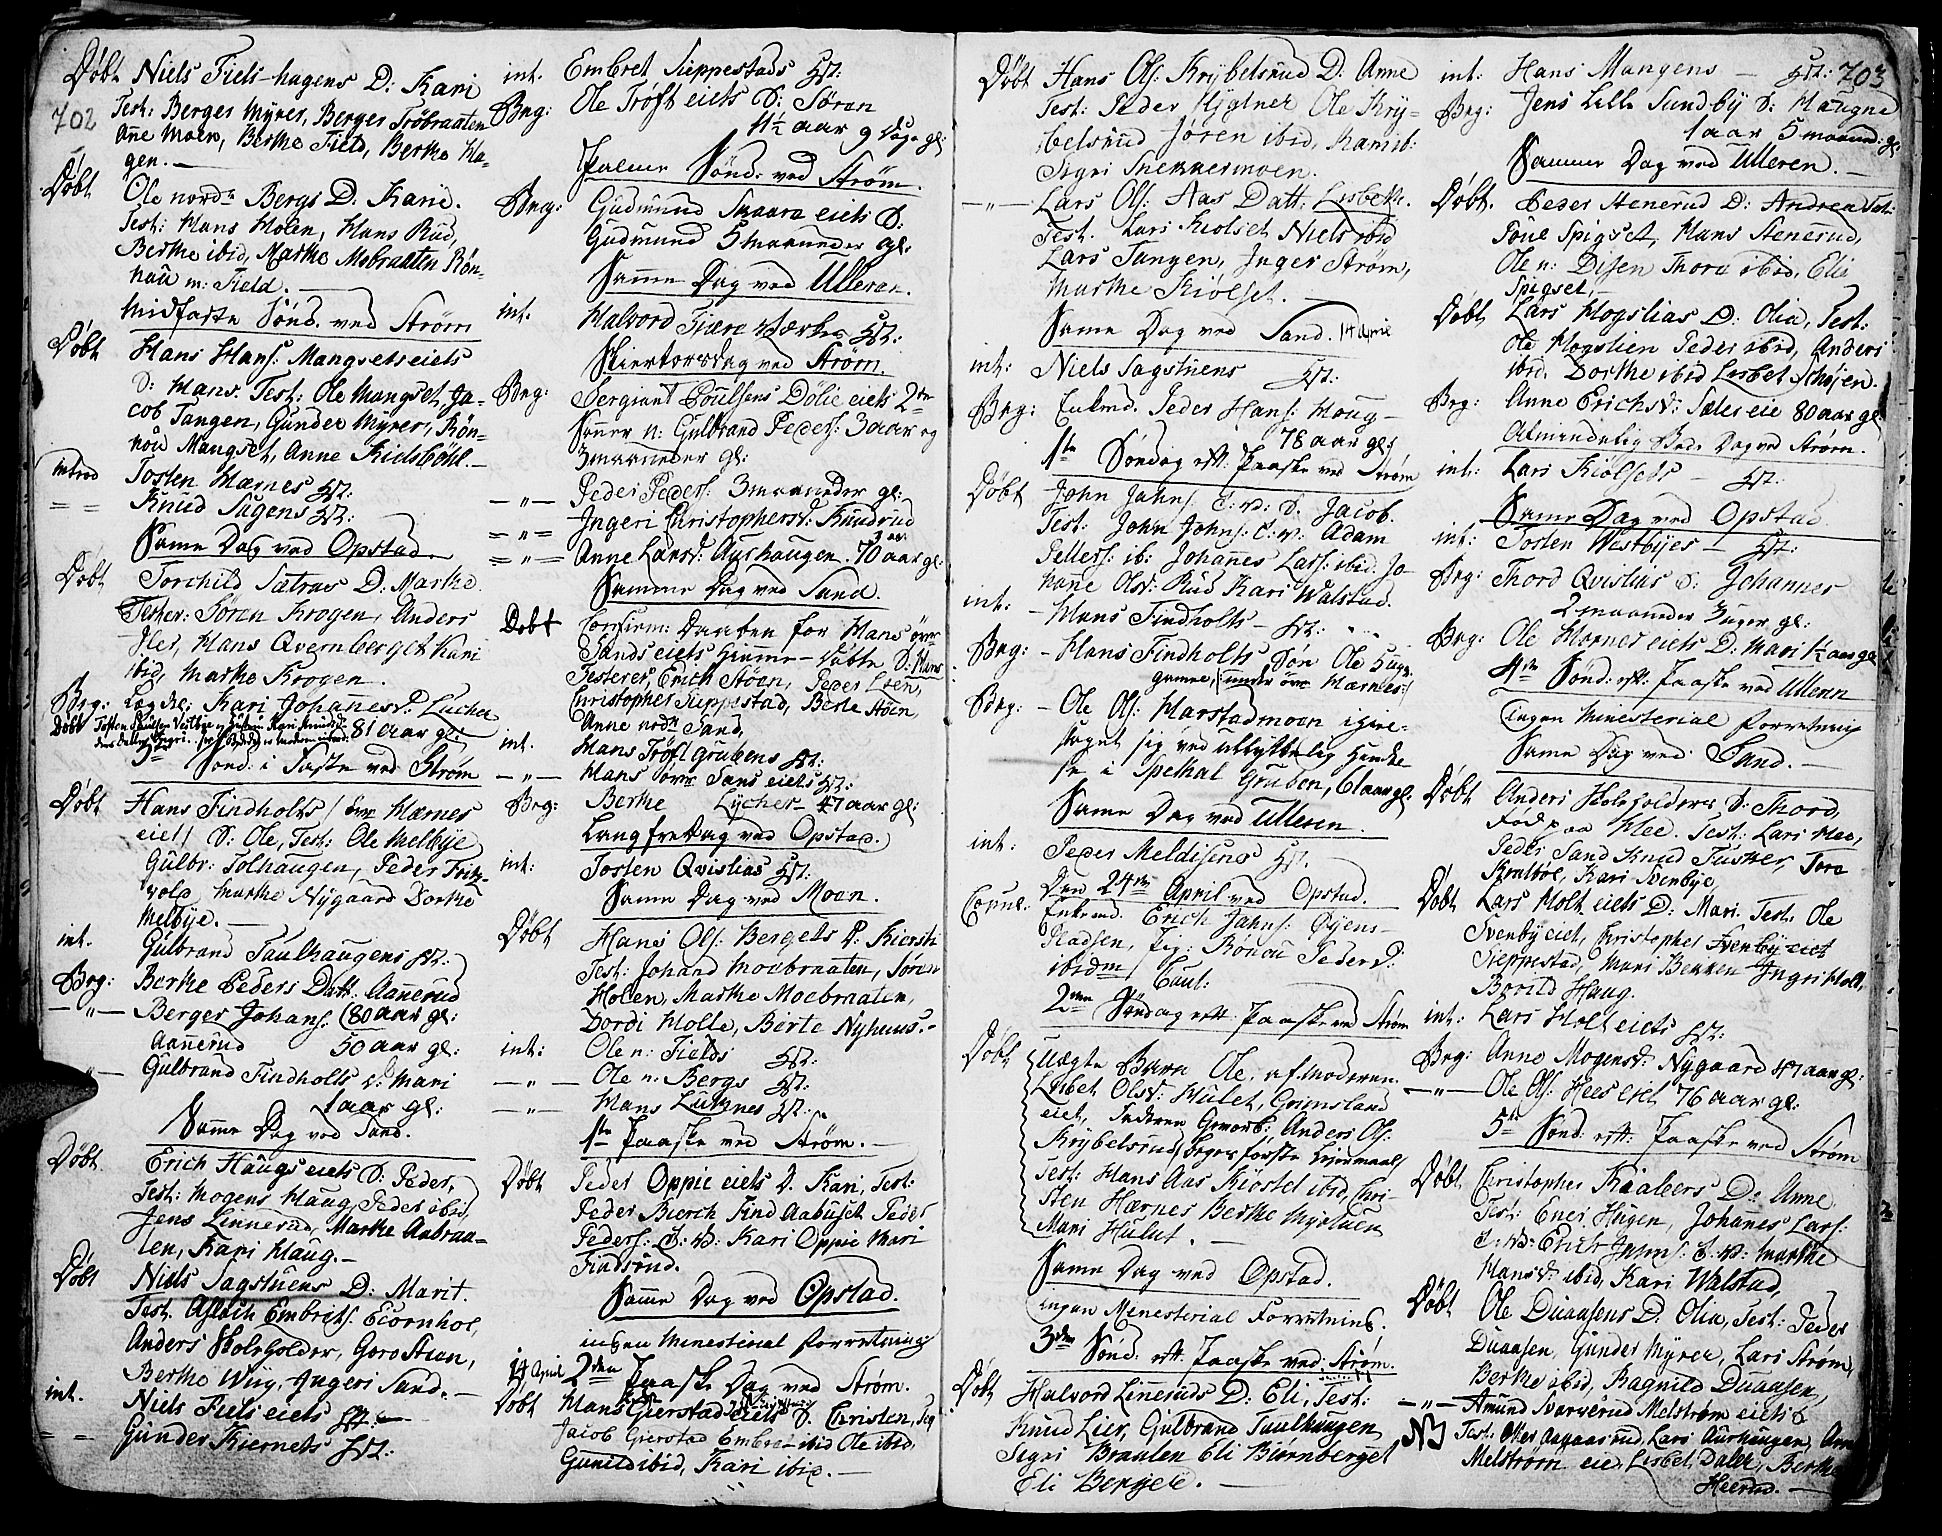 702
Døbt Niels Fiels-hagens D: Kari
Test: Berger Myrer, Berger Tröbraaten
Anne Moen, Berthe Field, Berthe Ha-
gen.
Døbt Ole nordre Bergs D. Karie.
Test: Hans Holen, Hans Rud,
Berthe ibid, Marthe Mobraaten Rön-
nau m: Field.
Midfaste Sönd. ved Ström
Døbt Hans Hans: Mangsets eiets
S: Hans. Test: Ole Mangset, Ja-
cob Tangen, Gunder Myrer, Rön-
nou Mangset, Anne Kielsböhl.
introd Tosten Hærnes Hst:
= = Knud Sagens Hst:
Same Dag ved Opstad
Døbt Torchild Sætras D: Marthe.
Tester: Sören Krogen, Anders
Hans Qvernberget Kari
ibid, Marthe Krogen.
Brg: Kari Johannesd: Lucher
81 aar gl:
3de Sönd: i Faste ved Ström
Døbt Hans Findholts / övre Hærnes
eiet / S: Ole, Test: Ole Melbye
Gulbr: Tolhaugen, Peder
Marthe Nygaard Dorthe
Melbye.
int. Gulbrand Taulhaugens Hst:
Brg: Berthe Peders Datt: Aanerud
80 aar gl:
— " — Berger Johans:
Aanerud 50 aar gl:
— " — Gulbrand Findholts D: Mari
1 aar gl:
Same Dag ved Sand.
Døbt Erich Haugs eiets S: Peder,
Test: Mogens Haug Peder ibid,
Jens Linnerud, Marthe Aabraa-
ten, Kari Haug.
Døbt Niels Sagstuens D: Marit.
Test. Aslach Embrets:
Anders Skolsholder, Goro Stien,
Berthe Wiig, Ingeri Sand.
int. Niels Fiels eiets Hst:
= = Gunder Kiernets Hst:
int. Embret Sieppestads Hst:
Brg: Ole Tröst eiets S: Sören
4½ aar 9 Dage gl:
Palme Sönd: ved Ström.
Brg: Gudmund Skaara eiets S:
Gudmund 5 maaneder gl:
Same Dag ved Ulleren.
int. Halvord Hst:
Skiertorsdag ved Ström.
Brg: Sergiant Poulsens Dölie eiets 2de
Sönner n: Gulbrand Peders: 3 aar og
3 maaneder gl:
— " — Peder Peders: 3 maaneder gl:
= " = Ingeri Christophersd: Knudrud
= " = Anne Larsd: Aushaugen. 70 aar gl:
Samme Dag ved Sand.
Døbt Confirm: Daaben for Hans övre
Sands eiets hiemme-Døbte S: Hans
Testerer, Erich Stöen, Peder Loen,
Christopher Sieppestad, Berte Stöen,
Anne nordre Sand,
int. Hans Tröst grubens Hst:
— " — Hans övre Sans eiets Hst:
Brg: Berthe Lycher 47 aar gl:
Langfredag ved Opstad.
int: Tosten Qvislias Hst:
Same Dag ved Moen.
Døbt Hans Ols: Bergets D: Kiersti
Test: Johand Moebraaten, Sören
Holen, Marthe Moebraaten,
Dordi Holle, Berte Nyhuus.
int: Ole n: Fields Hst:
— " — Ole n: Bergs Hst:
— " — Hans Hst:
1ste Paaske ved Ström.
Døbt Peder Oppie eiets D. Kari, Test:
Peder Bierch Find Aabuset Peder
Peders: S: V: Kari Oppie Mari
Findsrud.
Same Dag ved Opstad.
ingen Ministerial forretning
14 April 2den Paaske Dag ved Ström.
Døbt Hans Gierstad eiets S. Christen, Test
Jacob Gierstad Embret ibid Ole ibid,
Gunild ibid, Kari ibid.
Døbt Hans Ols: Krybelsrud D: Anne
Test: Peder Ole Kry-
belsrud Jören ibid, Kari ib:
Sigri Snekkermoen.
— " — Lars Ols: Aas Datt: Lisbeth.
Test. Lars Kiolset Niels ibid
Lars Tangen, Inger Ström,
Marthe Kiölset.
Same Dag ved Sand. 14 April
int: Niels Sagstuens Hst:
Brg: Enkmd. Peder Hans: Houg
78 aar gl:
1ste Söndag eft. Paaske ved Ström
Døbt John Johns: S: V: S: Jacob.
Test: John Johns: S: V: Adam
Pellers: ib: Johannes Lars: ibid. Jo-
hane Olsd: Rud Kari Walstad.
int: Hans Findholts Hst:
Brg: Hans Findholts Sön Ole
gamme, / under övre Hærnes: /
Brg: Ole Ols: Harstadmoen igien-
taget sig ved ulykkelig Hænde
se i Spethal Gruben, 61 aar gl:
Same Dag ved Ulleren.
int: Peder Meldisens Hst.
Den 24de April ved Opstad.
Copul. Enkmd. Erich Jahns:
Pladsen, Pig: Rönnu Pedersd:
ibidm Caul:
2den Söndag eft. Paaske ved Ström
Døbt Uægte Barn Ole, af Moderen
Lisbet Olsd: Hulet, Grimsland
eiet, Faderen Gevorb: Anders Ols:
Krybelsrud, begges første Leiermaal
Test: Hans Aas Kiostel ibid, Chri-
sten Hærnes Berthe
Mari Hulet.
Same Dag ved Opstad.
ingen Menesterial Forretning.
3die Sönd: eft. Paaske ved Ström.
Døbt Halvord Linneruds D: Eli, Test:
Knud Lier, Gulbrand Taulhaugen
Sigri Braaten Eli Biernberget
Eli Bergete.
703
int: Hans Mangens Hst:
Brg: Jens Lille Sundby S: Haugne
1 aar 5 maaned: gl:
Samme Dag ved Ulleren.
Døbt. Peder Stenerud D: Andrea Test:
Poul Spigset, Hans Stenerud,
Ole n: Disen Thora ibid, Eli
Spigset,
Døbt Lars Hogslias D: Olia, Test:
Ole Hogslien Peder ibid, Anders
ibid. Dorthe ibid Lisbet Schöjen.
Brg: Anne Erichsd: Sæter eie 80 aar gl
Almindelig Bede Dag ved Ström.
int: Lars Kiölseds Hst:
Same Dag ved Opstad
int: Tosten Westbyes Hst:
Brg: Thord Qvislias S: Johannes
2 maaneder 3 uger gl:
Brg: Ole Hornes eiets D: Mari ½ aar gl
4de Sönd: eft: Paaske ved Ulleren
ingen Ministerial forretning
Same Dag ved Sand.
Døbt Anders Skolsholders S: Thord,
Fød paa Hee. Test: Lars Hee,
Peder Sand Knud Tusker, Tore
Kari Svenbye,
Døbt Lars Holt eiets D: Mari. Test: Ole
Svenby eiet, Christopher Svenby eiet
Sieppestad, Mari Bekken Ingri Holt,
Borild Haug.
int: Lars Holt eiets Hst:
Brg: Anne Mogensd: Nygaard 47 aar gl:
— " — Ole Ols: Hees eiet 76 aar gl:
5te Sönd: eft: Paaske ved Ström
Døbt Christopher Kaalers D: Anne
Test: Ener Hugen, Johannes Lars:
S: V: Erich Jahns: S: V: Marthe
Hansd: ibid, Kari Walstad,
Døbt Ole Duaasens D: Olia, Test: Peder
Duaasen, Gunder Myrer, Lars Ström,
Berthe ibid, Ragnild Duaasen,
— " — Amund Svarverud Melström eiets S
NB Test: Lars Aurhaugen, Ann
Melström eie, Lisbet Daler, Berthe
Heerud.